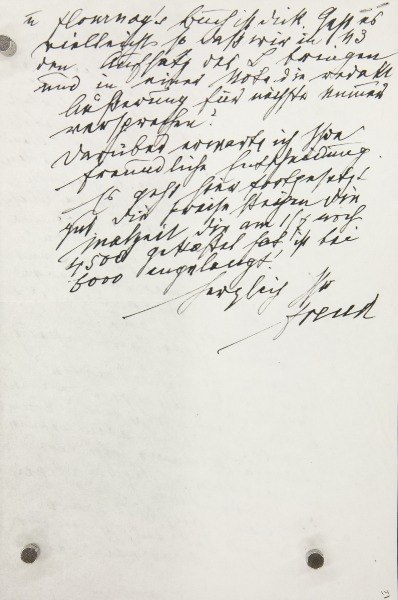 Flournoy's Buch ist dick. Geht es
vielleicht so daß wir in 1.
den Aufsatz des bringen
und in einer Note die
Äußerung für nächste Nummer
versprechen?
Darüber erwarte ich Ihre
freundliche Entscheidung.
Es geht hier fortgesetzt
gut, die Preise steigen die
Mahlzeit die am 1/7 noch
4500 gekostet hat, ist bei
6000 angelangt.
Herzlich Ihr
Freud